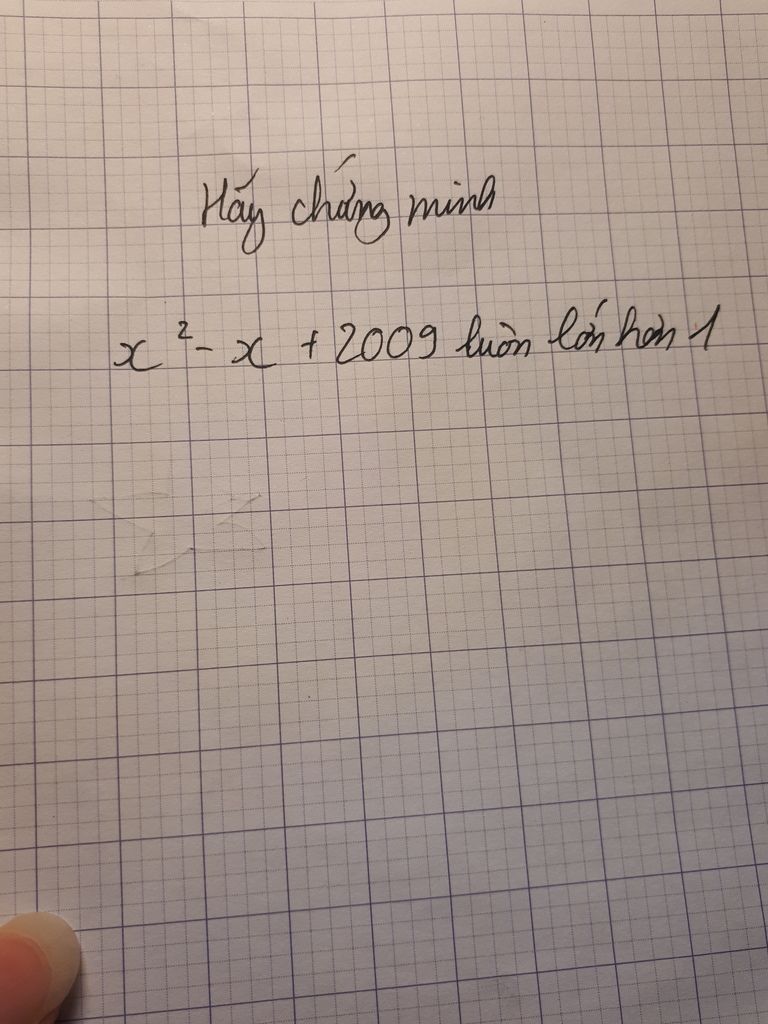 Hãy chứng minh
x² - x + 2009 luôn lớn hơn 1